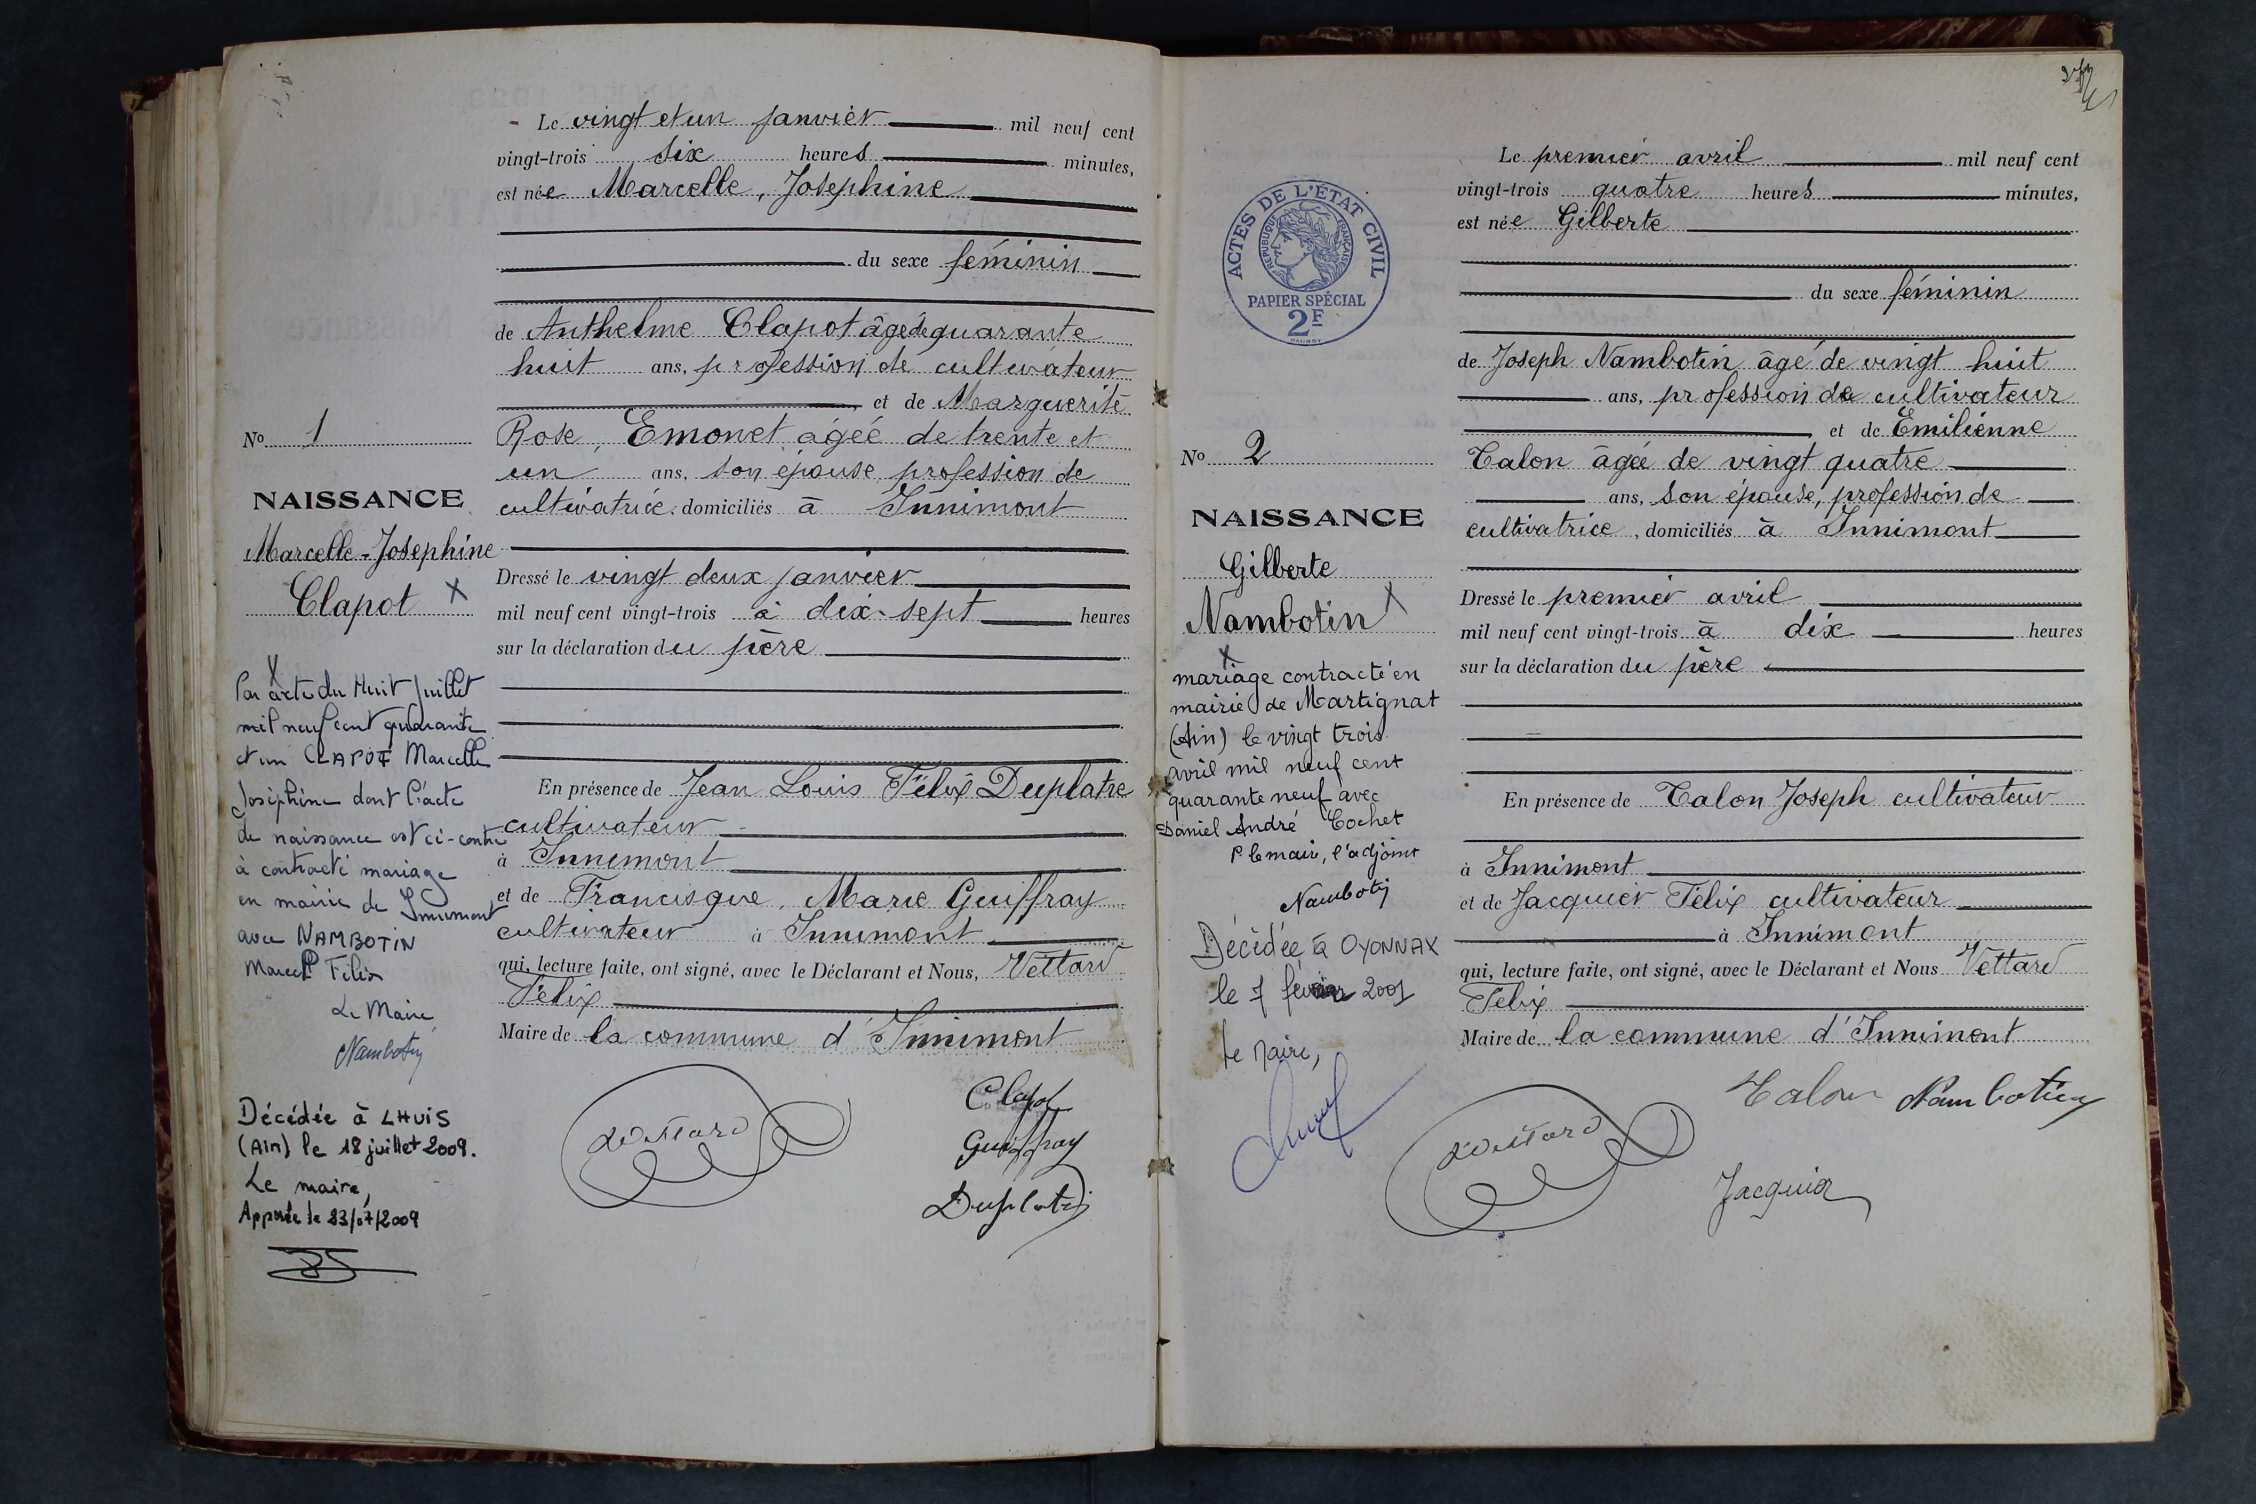 Le vingt et un janvier mil neuf cent
vingt-trois six heures minutes,
est née Marcelle, Josephine
du sexe féminin
de Anthelme Clapot âgé de quarante
huit ans, profession de cultivateur
et de Marguerite
Rose, Emonet âgée de trente et
un ans, son épouse, profession de
cultivatrice, domiciliés à Innimont
Dressé le vingt deux janvier
mil neuf cent vingt-trois à dix-sept heures
sur la déclaration du père
En présence de Jean Louis Félix Duplatre
cultivateur
à Innimont
et de Francisque, Marie Guiffray
cultivateur à Innimont
qui, lecture faite, ont signé, avec le Déclarant et Nous, Vettard
Félix
Maire de la commune d'Innimont
Clapot
Vettard
Guiffray
Duplatre
No 1
NAISSANCE
Marcelle-Josephine
Clapot X
X
Par acte du Huit Juillet
mil neuf cent quarante
et un CLAPOT Marcelle
Joséphine dont l'acte
de naissance est ci-contre
à contracté mariage
en mairie de Innimont
avec NAMBOTIN
Marcel Félix
Le Maire
Nambotin
Décédée à LHUIS
(Ain) le 18 juillet 2009.
Le maire,
Apposée le 23/07/2009
Le premier avril mil neuf cent
vingt-trois quatre heures minutes,
est née Gilberte
du sexe féminin
de Joseph Nambotin âgé de vingt huit
ans, profession de cultivateur
et de Emilienne
Talon âgée de vingt quatre
ans, son épouse, profession de
cultivatrice, domiciliés à Innimont
Dressé le premier avril
mil neuf cent vingt-trois à dix heures
sur la déclaration du père
En présence de Talon Joseph cultivateur
à Innimont
et de Jacquier Félix cultivateur
à Innimont
qui, lecture faite, ont signé, avec le Déclarant et Nous Vettard
Félix
Maire de la commune d'Innimont
Talon Nambotin
Vettard
Jacquier
ACTES DE L'ÉTAT CIVIL
RÉPUBLIQUE FRANÇAISE
PAPIER SPÉCIAL
2F
No 2
NAISSANCE
Gilberte
Nambotin X
X
mariage contracté en
mairie de Martignat
(Ain) le vingt trois
avril mil neuf cent
quarante neuf avec
Daniel André Cochet
P. le maire, l'adjoint
Nambotin
Décédée à OYONNAX
le 7 février 2001
Le Maire,